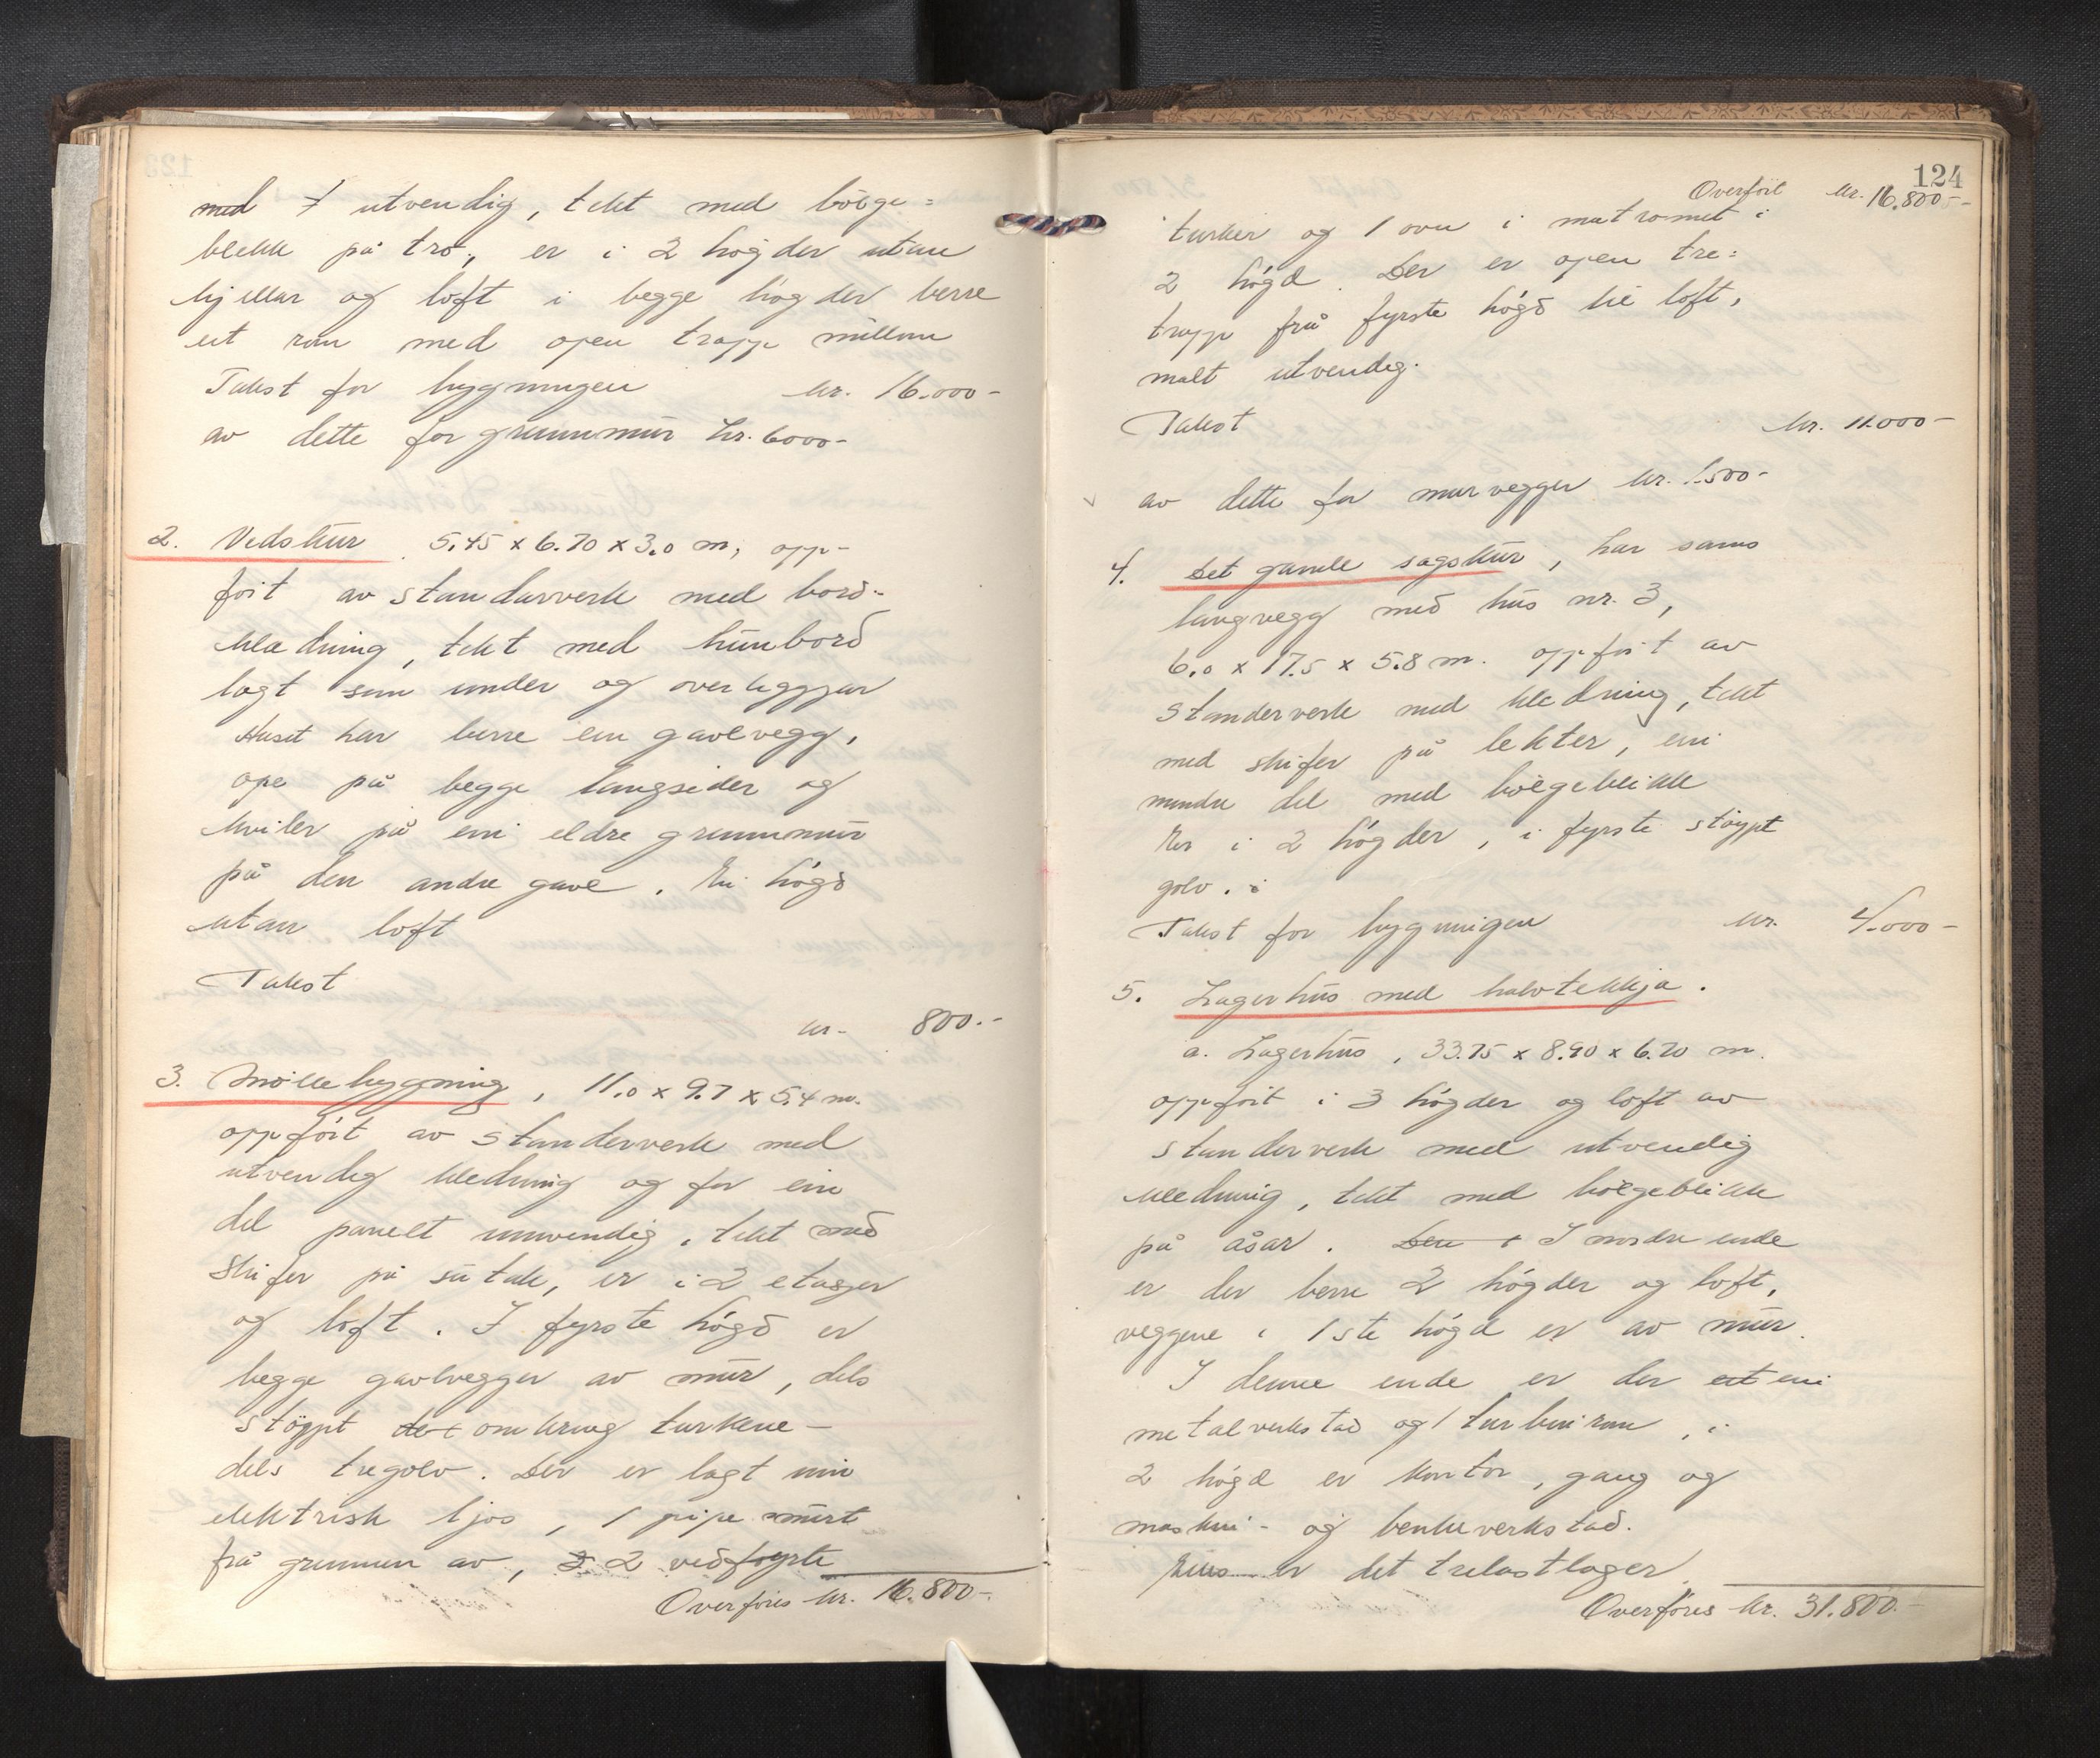 med 7 utvendig, tekt med bölge=
blekk på tro, er i 2 högder utan
kjellar og loft i begge högder berre
eit rom med open trapp millom
Takst for bygningen kr. 16.000-
av dette for grunnmur kr. 6000-
2. Vedskur 5.45 x 6.70 x 3.0 m, opp-
fört av standarverk med bord-
klædning, tekt med hunbord
lagt som under og overliggjar
Huset har berre ein gavlvegg,
ope på begge langsider og
kviler på ein eldre grunnmur
på den andre gavl. Ei högd
utan loft
Takst
kr- 800.-
3. Möllebygning, 11.0 x 9.7 x 5.4 m.
oppfört av standerverk med
utvendig kledning og for ein
del panelt innvendig, tekt med
skifer på sutak, er i 2 etasjer
og loft. I fyrste högd er
begge gavlvegger av mur, dels
stöypt det omkring turkene-
dels tregolv. Der er lagt inn
elektrisk ljos, 1 pipe murt
frå grunnen av, 2 vedfyrte
Overföres kr. 16.800-
124
Overfört kr. 16.800-
turker og 1 ovn i matromet i
2 högd. Der er open tre=
trapp frå fyrste högd til loft,
malt utvendig.
Takst kr. 11.000-
av dette for murvegger kr. 1.500-
4. Det gamle sagskur, har sams
langvegg med hus nr. 3,
6.0 x 17.5 x 5.8 m. oppfört av
standerverk med kledning, tekt
med skifer på lekter, ein
mindre del med bölgeblikk
Er i 2 högder, i fyrste stöypt
golv. i
Takst for bygningen kr. 4.000-
5. Lagerhus med halvtekkja.
a. Lagerhus, 33.75 x 8.90 x 6.70 m.
oppfört i 3 högder og loft av
standerverk med utvendig
kledning, tekt med bölgeblikk
på åsar. Den i I nordre ende
er der berre 2 högder og loft,
veggene i 1ste högd er av mur.
I denne ende er der eit ein
metalverkstad og 1 turbinrom, i
2 högd er kontor, gang og
maskin- og benkeverkstad.
Ellers er det trelastlager.
Overföres kr. 31.800.-